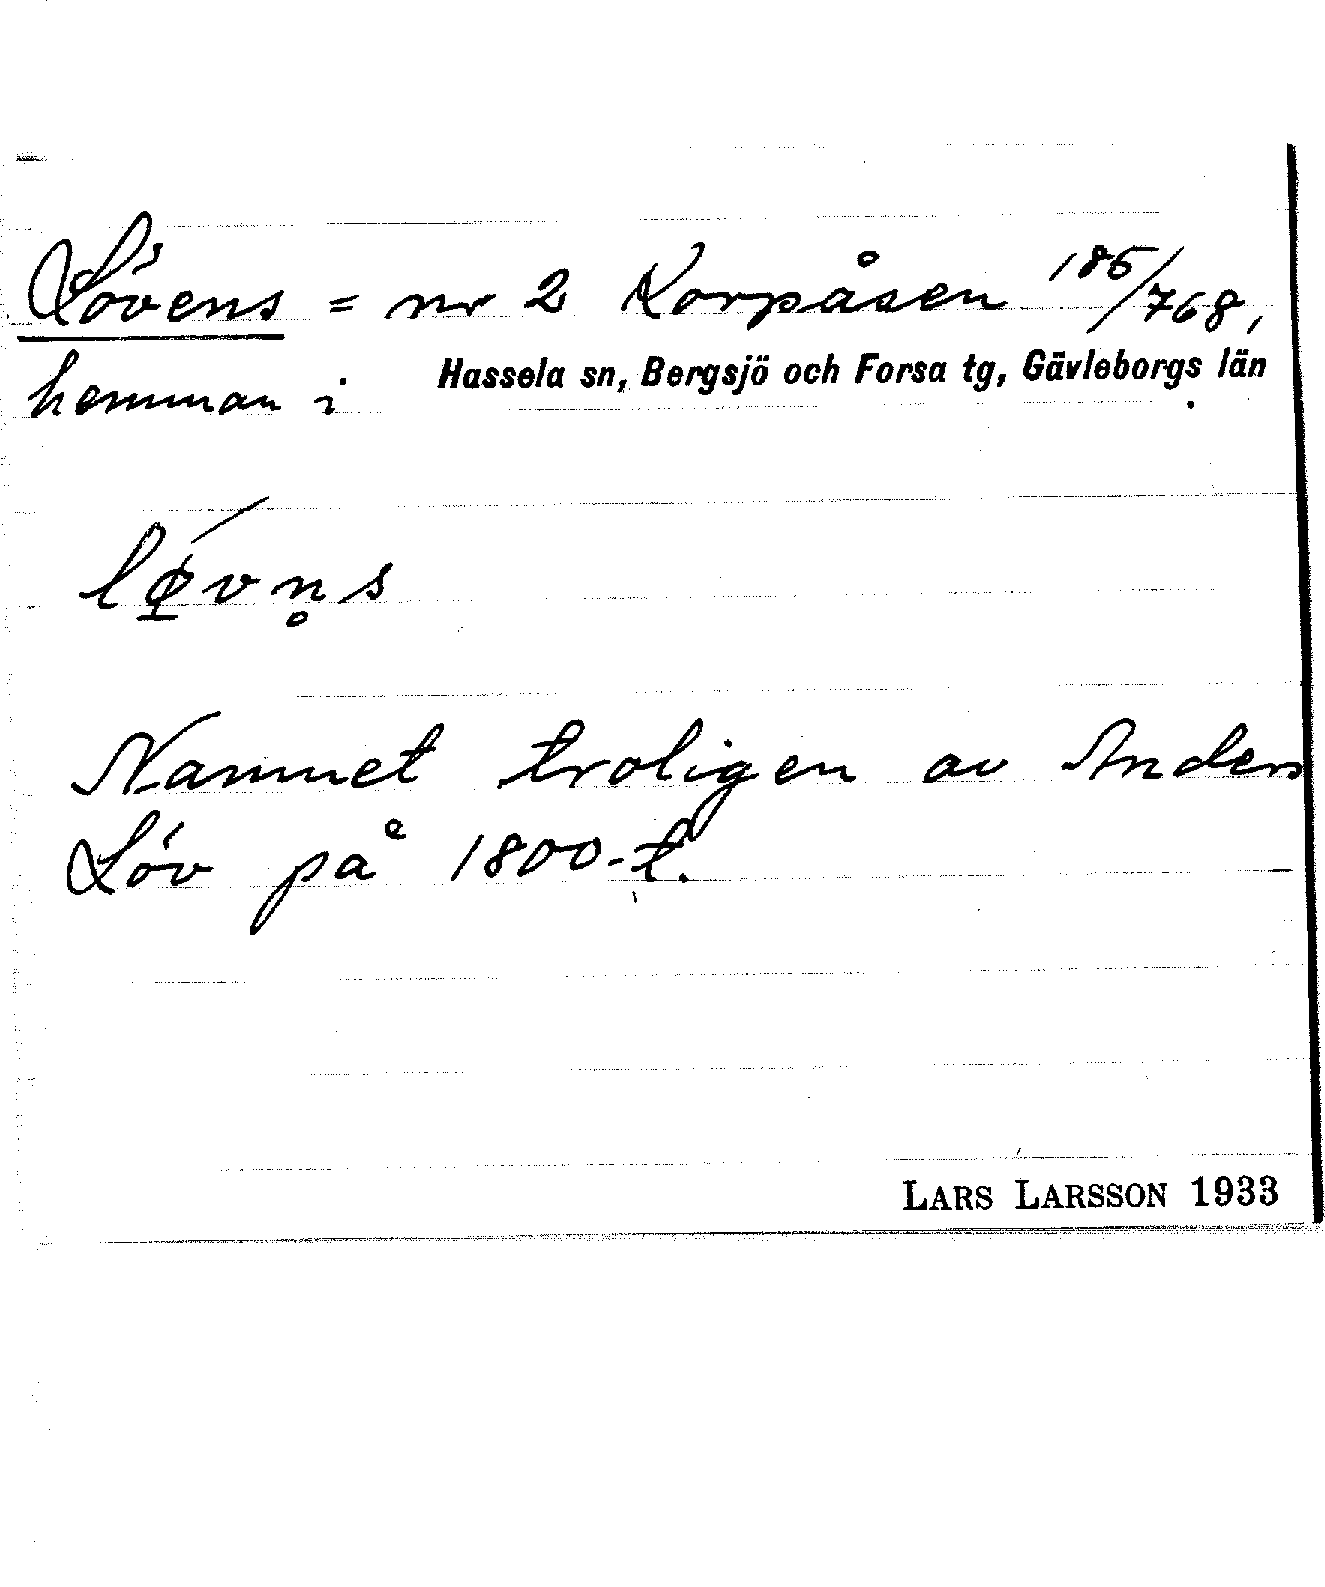 Lövens = nr 2 Korpåsen 185/768,
hemman i Hassela sn, Bergsjö och Forsa tg, Gävleborgs län
lǿ̱vn̥s
Namnet troligen av Anders
Löv på 1800-t.
LARS LARSSON 1933